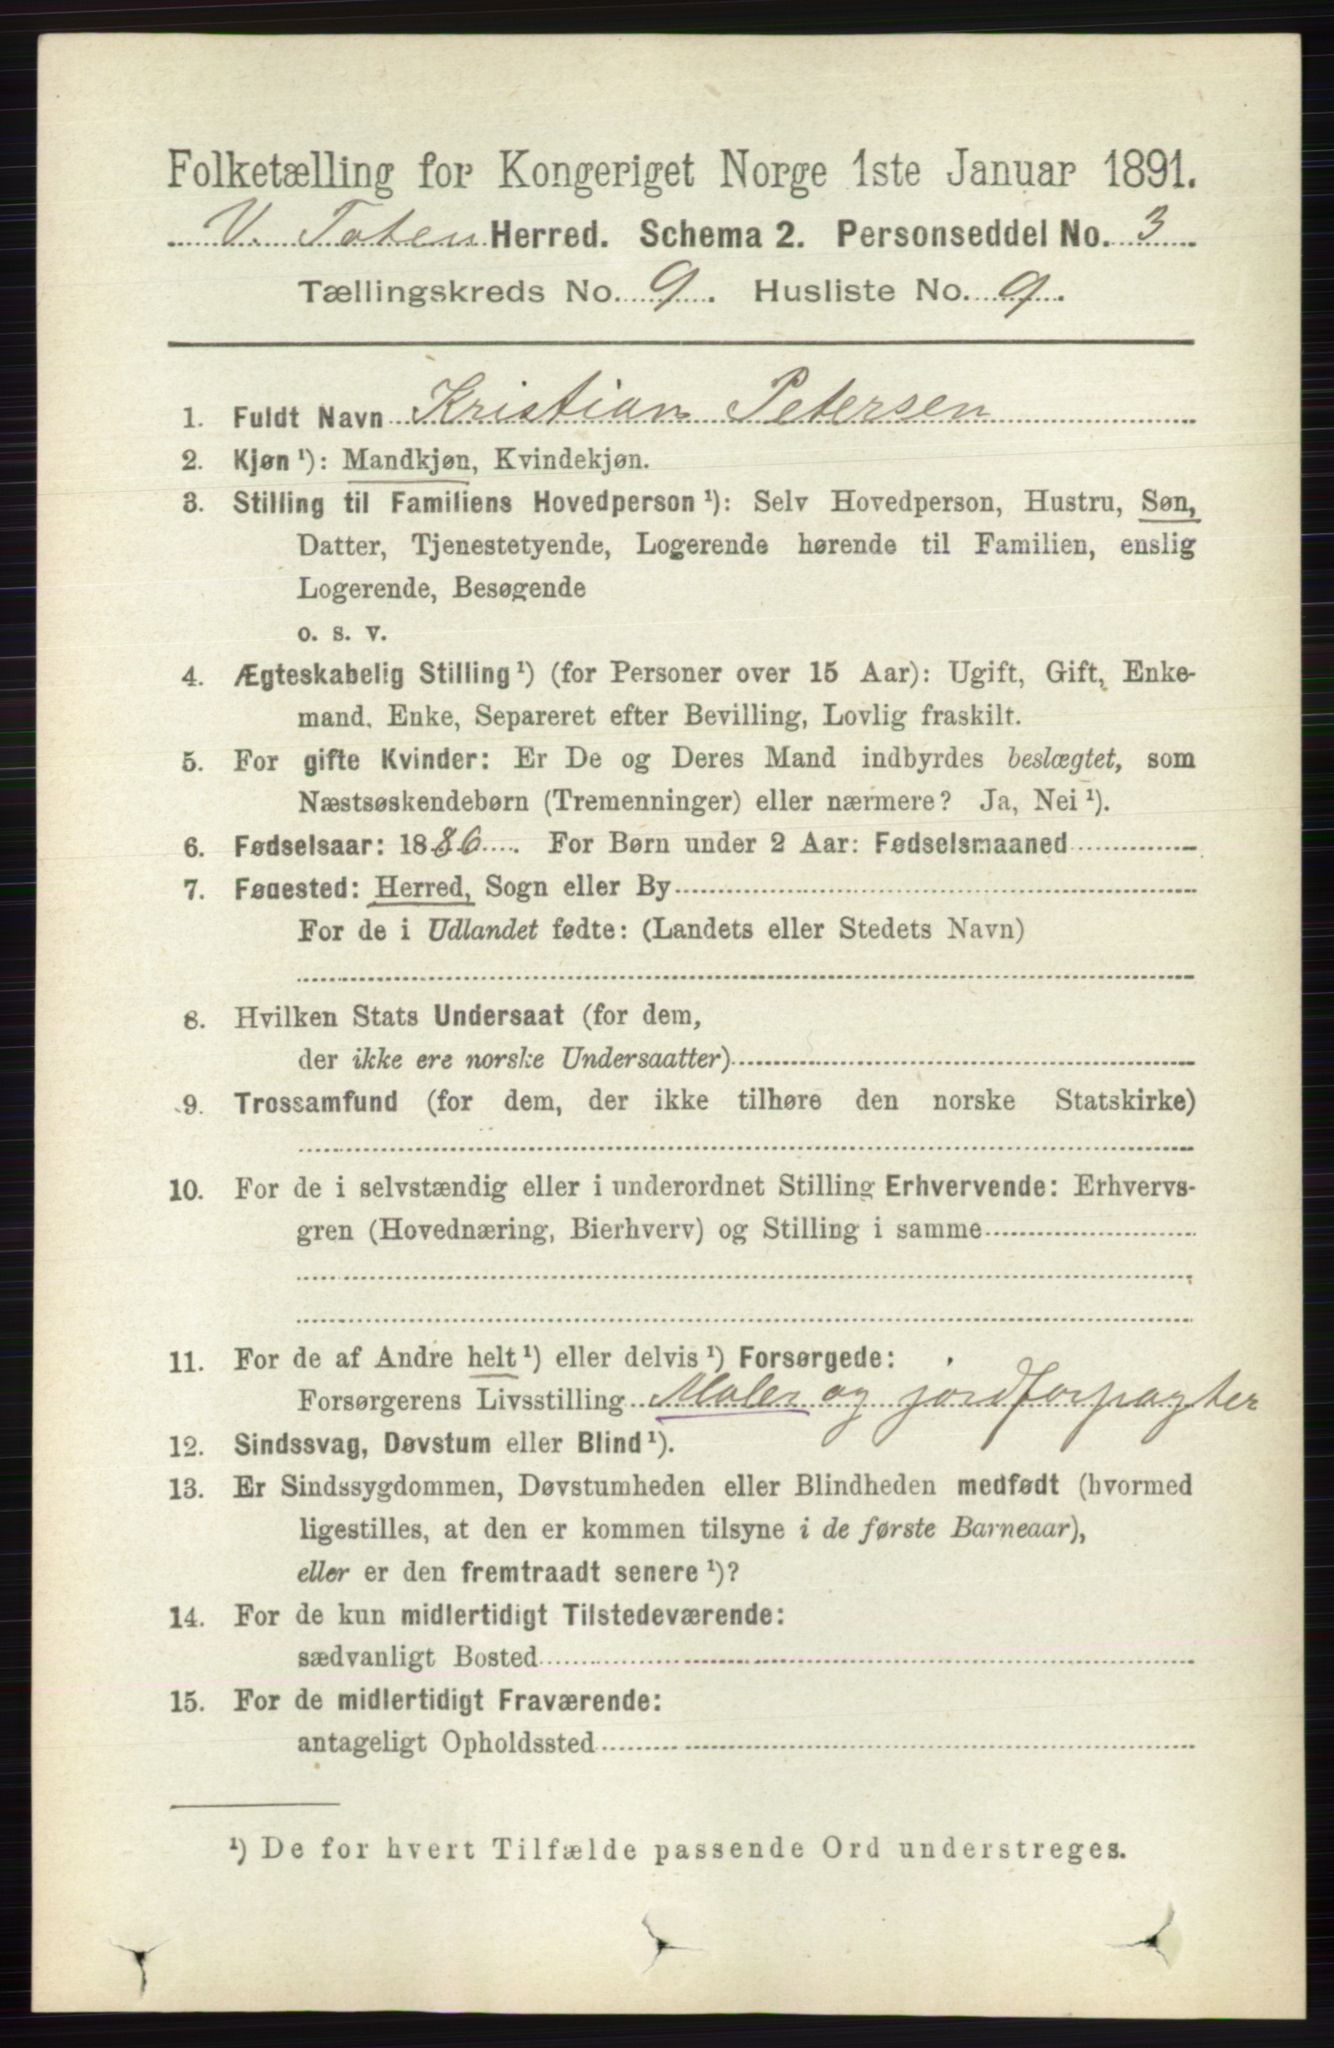 Folketælling for Kongeriget Norge 1ste Januar 1891.
V. Toten Herred. Schema 2. Personseddel No. 3
Tællingskreds No. 9. Husliste No. 9.
1. Fuldt Navn Kristian Petersen
2. Kjøn ¹): Mandkjøn, Kvindekjøn.
3. Stilling til Familiens Hovedperson ¹): Selv Hovedperson, Hustru, Søn,
Datter, Tjenestetyende, Logerende hørende til Familien, enslig
Logerende, Besøgende
o. s. v.
4. Ægteskabelig Stilling ¹) (for Personer over 15 Aar): Ugift, Gift, Enke-
mand, Enke, Separeret efter Bevilling, Lovlig fraskilt.
5. For gifte Kvinder: Er De og Deres Mand indbyrdes beslægtet, som
Næstsøskendebørn (Tremenninger) eller nærmere? Ja, Nei ¹).
6. Fødselsaar: 1886. For Børn under 2 Aar: Fødselsmaaned
7. Fødested: Herred, Sogn eller By
For de i Udlandet fødte: (Landets eller Stedets Navn)
8. Hvilken Stats Undersaat (for dem,
der ikke ere norske Undersaatter)
9. Trossamfund (for dem, der ikke tilhøre den norske Statskirke)
10. For de i selvstændig eller i underordnet Stilling Erhvervende: Erhvervs-
gren (Hovednæring, Bierhverv) og Stilling i samme
11. For de af Andre helt ¹) eller delvis ¹) Forsørgede:
Forsørgerens Livsstilling Maler og jordforpagter
12. Sindssvag, Døvstum eller Blind ¹).
13. Er Sindssygdommen, Døvstumheden eller Blindheden medfødt (hvormed
ligestilles, at den er kommen tilsyne i de første Barneaar),
eller er den fremtraadt senere ¹)?
14. For de kun midlertidigt Tilstedeværende:
sædvanligt Bosted
15. For de midlertidigt Fraværende:
antageligt Opholdssted
¹) De for hvert Tilfælde passende Ord understreges.